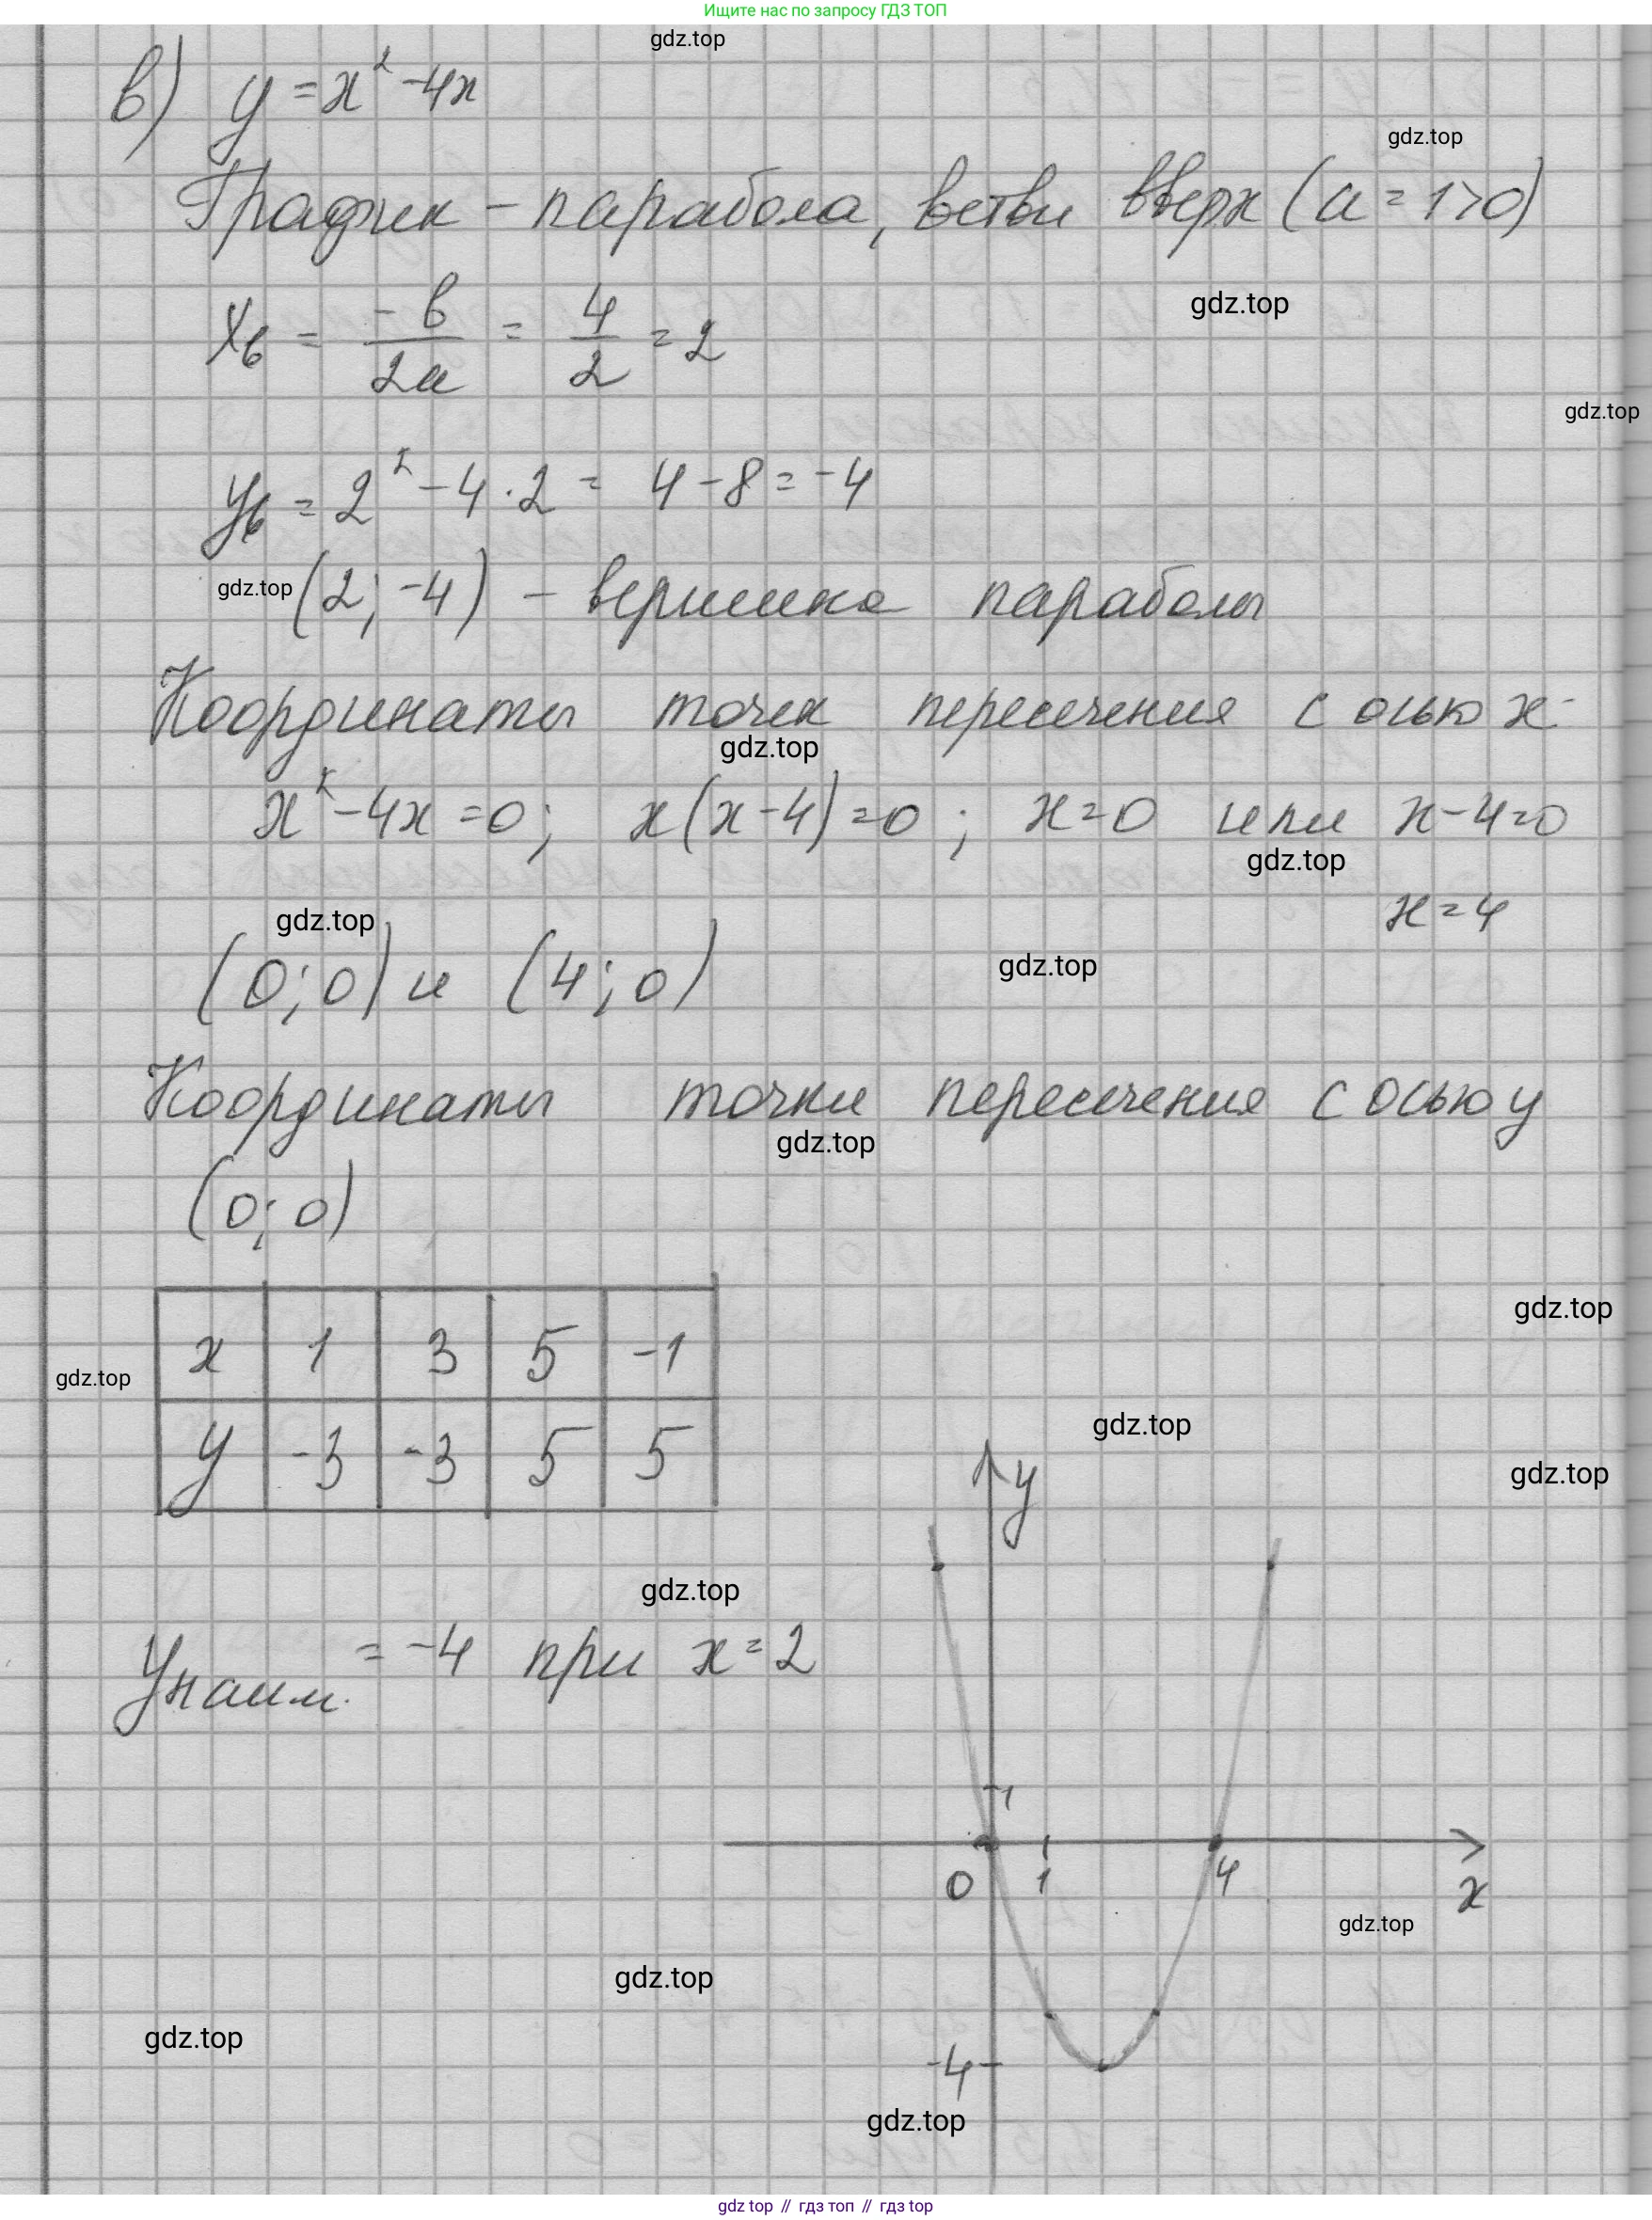 Ищите нас по запросу ГДЗ ТОП
gdz.top
в) y = x² - 4x
gdz.top
График - парабола, ветви вверх (a = 1 > 0)
gdz.top
xв = -b/2a = 4/2 = 2
gdz.top
yв = 2² - 4 · 2 = 4 - 8 = -4
gdz.top (2; -4) - вершина параболы
Координаты точек пересечения с осью x:
gdz.top
x² - 4x = 0; x(x - 4) = 0; x = 0 или x - 4 = 0
gdz.top
x = 4
gdz.top
(0; 0) и (4; 0)
gdz.top
Координаты точки пересечения с осью y
gdz.top
(0; 0)
gdz.top
x 1 3 5 -1
gdz.top
y -3 -3 5 5
gdz.top
gdz.top
y
gdz.top
yнаим. = -4 при x = 2
1
0 1 4 x
gdz.top
gdz.top
gdz.top
-4
gdz.top
gdz top // гдз топ // гдз top